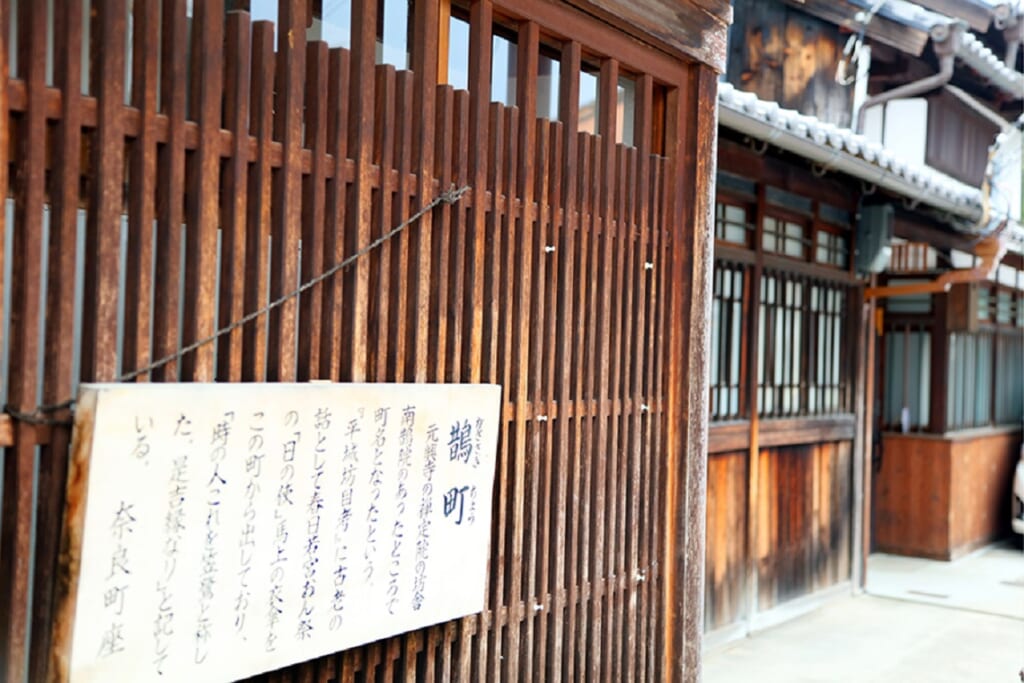 鵲町
元興寺の禅定院の坊舎
南鵲院のあったところで
町名となったという。
『平城坊目考』に古老の
話として春日若宮おん祭
の「日の使」馬上の衣を
この町から出しており、
「時の人これを笠鷺と称し
た。是吉縁なり」と記して
いる。
奈良町座